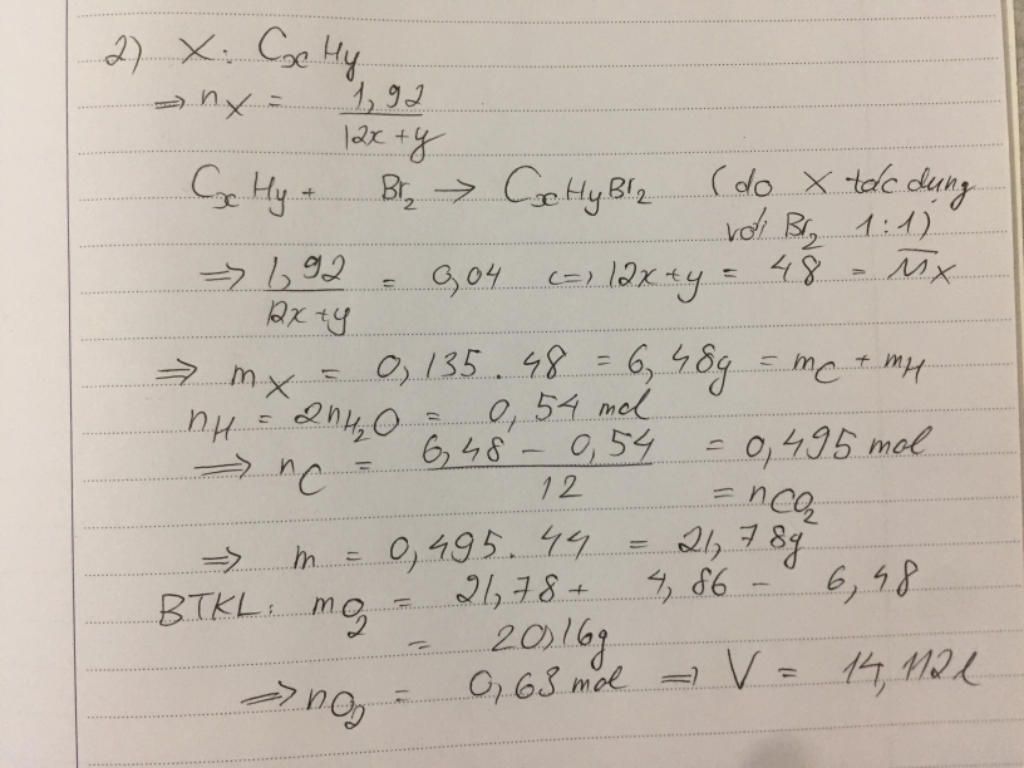 2) X: CxHy
=> nX = 1,92 / 12x + y
CxHy + Br2 → CxHyBr2 (do X tác dụng
với Br2 1:1)
=> 1,92 / 12x + y = 0,04 <=> 12x + y = 48 = M̄X
=> mX = 0,135 . 48 = 6,48g = mC + mH
nH = 2nH2O = 0,54 mol
=> nC = 6,48 - 0,54 / 12 = 0,495 mol
= nCO2
=> m = 0,495 . 44 = 21,78g
BTKL: mO2 = 21,78 + 4,86 - 6,48
= 20,16g
=> nO2 = 0,63 mol => V = 14,112l